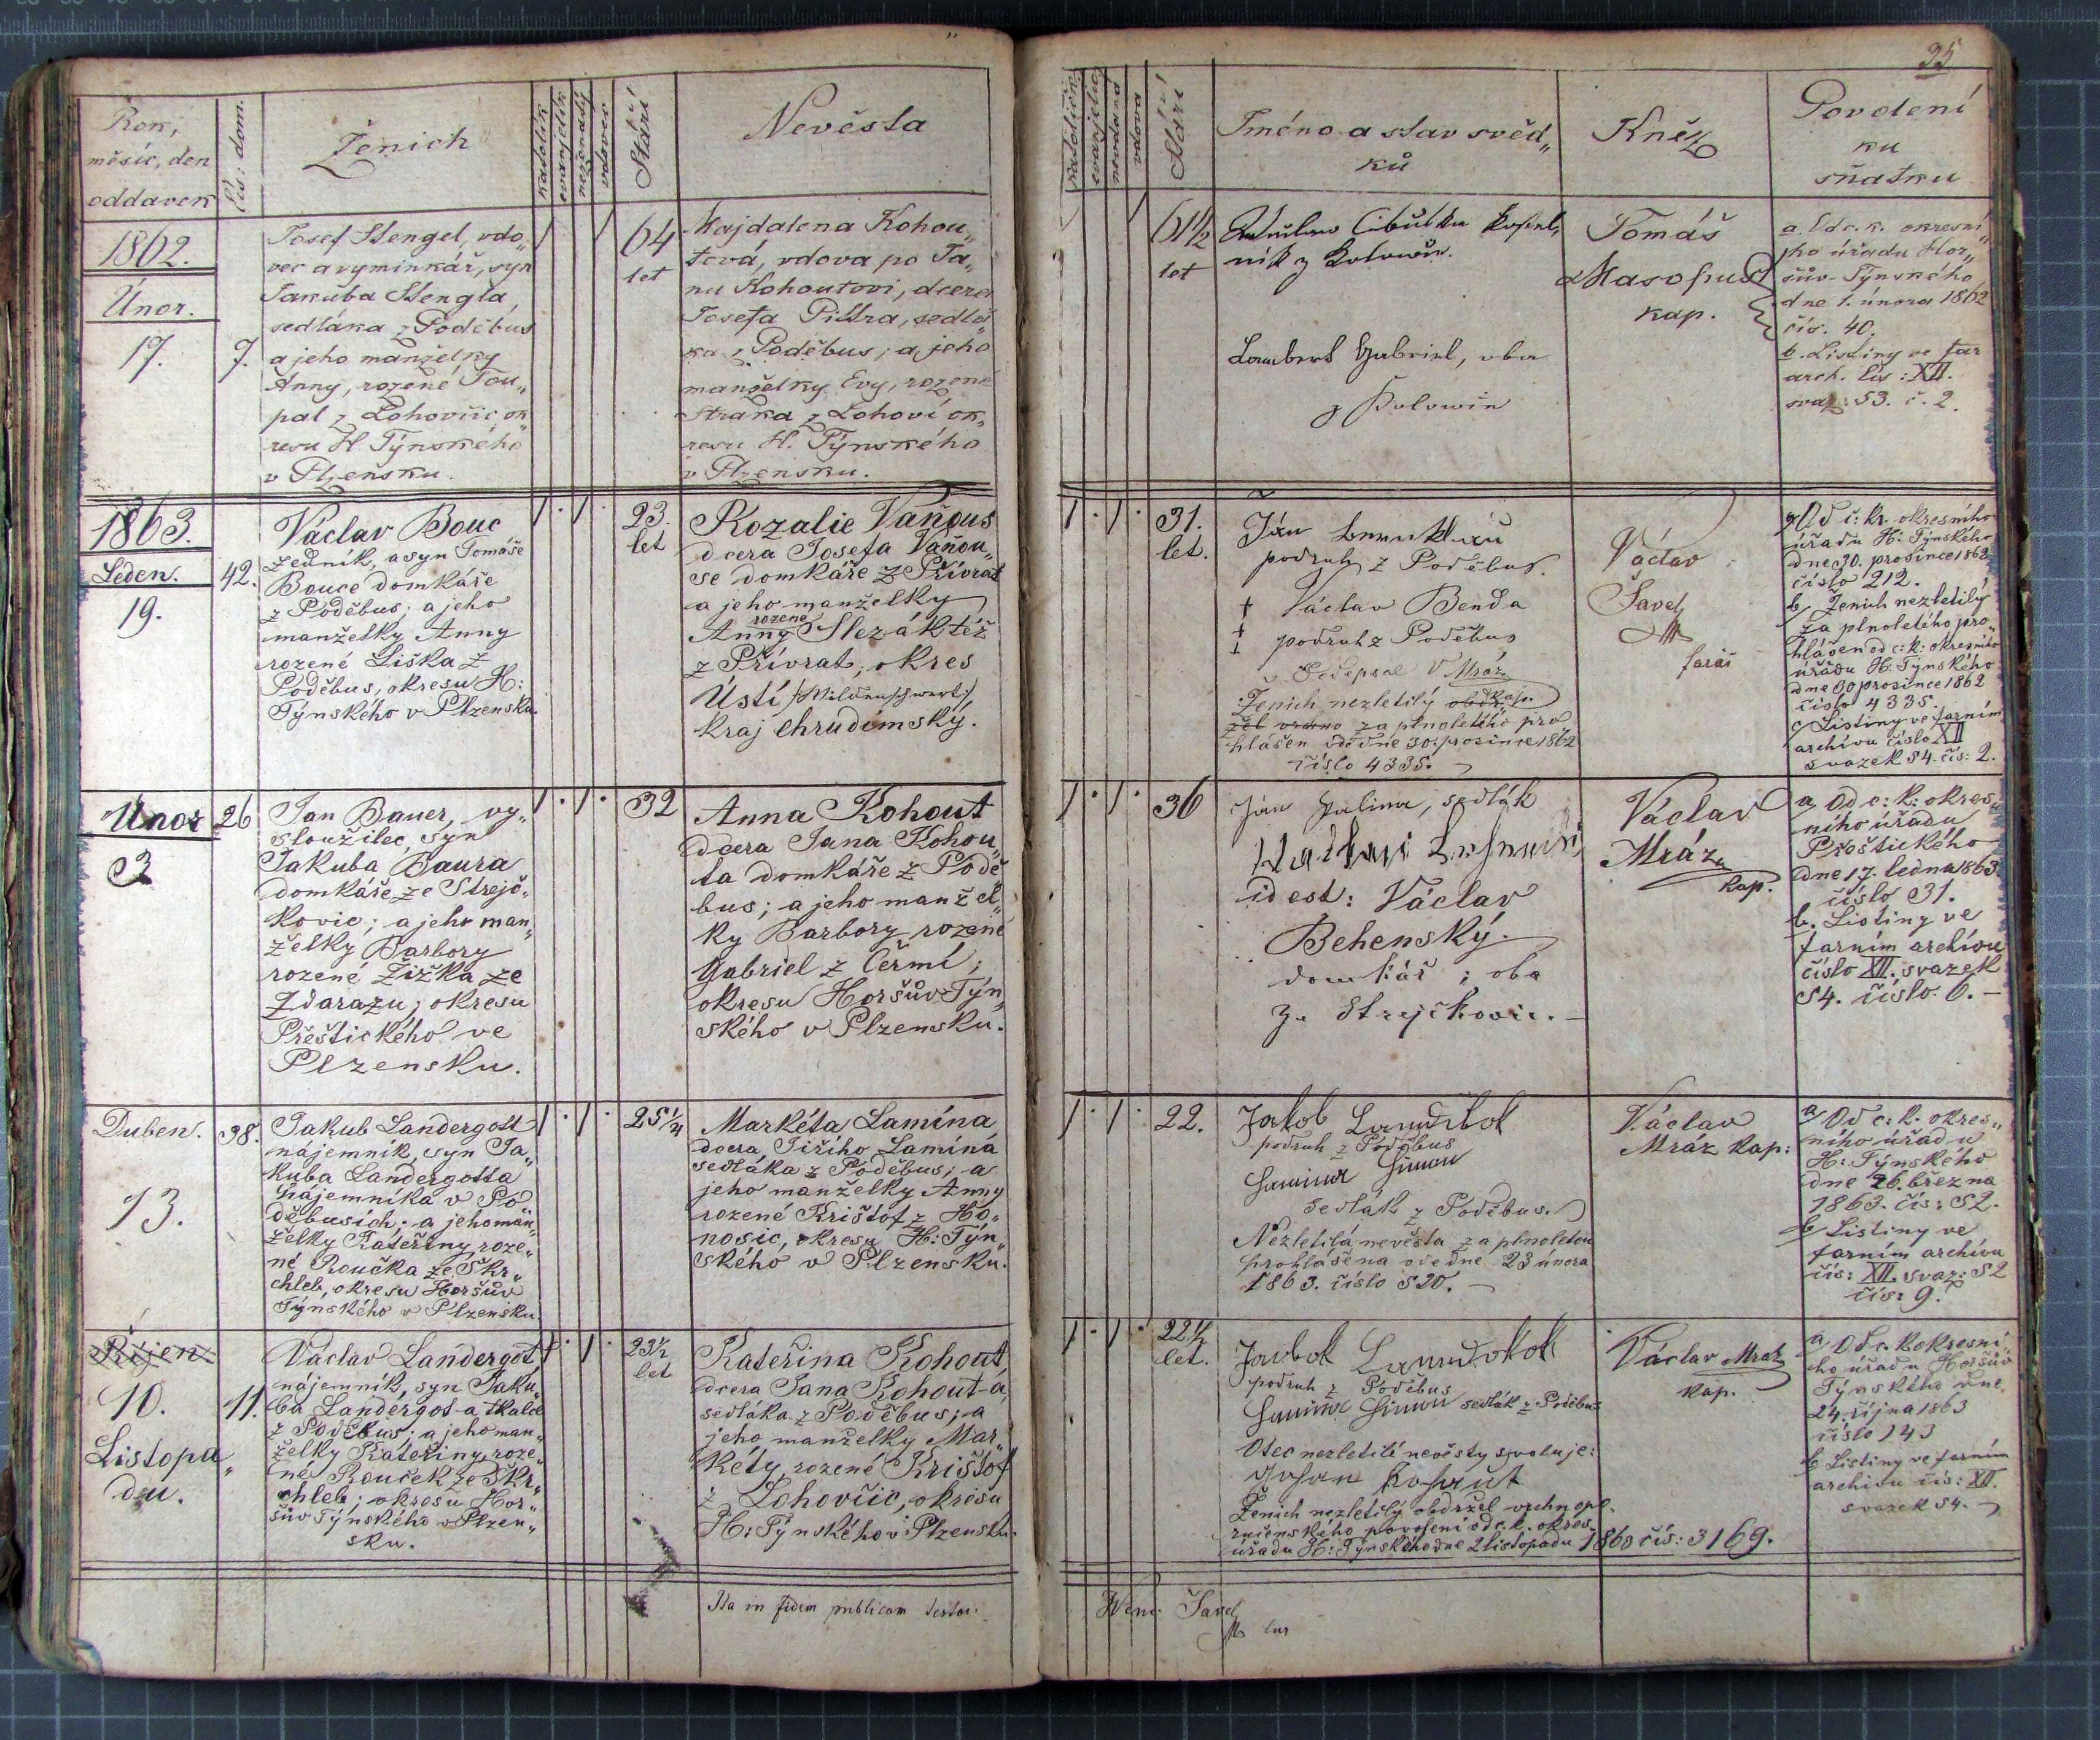 35
Rok,
měsíc, den
oddavek
čís: dom.
Ženich
katolík
evanjelík
neženatý
vdovec
Stáří
Nevěsta
katolička
evanjelič
nevdaná
vdova
Stáří
Jméno a stav svěd„
ků
Kněz
Povolení
ku
sňatku
1862.
Únor.
17.
7.
Josef Stengel, vdo„
vec a vyminkář, syn
Jakuba Stengla,
sedláka z Poděbus
a jeho manželky
Anny, rozené Tou„
pal z Lohovčic ok„
resu H Týnského
v Plzeňsku.
64
let
Majdalena Kohou„
tová, vdova po Ja„
nu Kohoutovi, dcera
Josefa Pittra, sedlá„
ka z Poděbus; a jeho
manželky Evy, rozené
Straka z Lohoví ok„
resu H. Týnského
v Plzensku.
61½
let
Cibulka
ník z
Lambert Gabriel, oba
z Kolowin
Tomáš
Masopust
kap.
a. Od c. k. okresní„
ho úřadu Hor„
šův-Týnského
dne 1. února 1862
čís. 40.
b. Listiny ve far
arch. čís: XII.
svaz: 53. č. 2.
1863.
Leden.
19.
42.
Václav Bouc
zedník, a syn Tomáše
Bouce domkáře
z Poděbus; a jeho
manželky Anny
rozené Liška z
Poděbus, okresu H:
Týnského v Plzensku.
23.
let
Rozalie Vaňous
dcera Josefa Vaňou„
se domkáře z Přívrat
a jeho manželky
rozené
Anny Slezák též
z Přívrat; okres
Ústí /:Wildenschwert:/
kraj chrudimský.
31.
let.
Ján
podruh z Poděbus.
† Václav Benda
† podruh z Poděbus
† Podepsal V Mráz
kap.
Ženich nezletilý obdr
žel vrchno za plnoletého pro
hlášen ode dne 30. prosince 1862
číslo 4335.
Václav
Šavel
farář
a/ Od c: kr. okresního
úřadu H: Týnského
dne 30. prosince 1862
číslo 212.
b/ Ženich nezletilý
za plnoletého pro„
hlášen od c: k: okresního
úřadu H: Týnského
dne 30 prosince 1862
číslo 4335.
c/ Listiny ve farním
archívu číslo XII
svazek 54. čís: 2.
Únor
3
26
Jan Bauer, vy„
sloužilec, syn
Jakuba Baura
domkáře ze Strejč„
kovic; a jeho man„
želky Barbory
rozené Žižka ze
Zdarazu; okresu
Přeštického ve
Plzensku.
32
Anna Kohout
dcera Jana Kohou„
ta domkáře z Podě
bus; a jeho manžel„
ky Barbory rozené
Gabriel z Čermí;
okresu Horšův Týn„
ského v Plzensku.
36
Ján Julina, sedlák
id est: Václav
Behenský.
domkář; oba
ze Strejčkovic. –
Václav
Mráz
kap.
a, Od c: k: okres„
ního úřadu
Přeštického
dne 17. ledna 1863.
číslo 31.
b. Listiny ve
farním archívu
číslo XII. svazek
54. číslo. 6. –
Duben.
13.
38.
Jakub Landergott
nájemník, syn Ja„
kuba Landergotta
nájemníka v Po„
děbusích; a jeho man„
želky Kateřiny roze„
né Roučka ze Skr„
chleb, okresu Horšův
Týnského v Plzensku.
25¼
Markéta Lamína
dcera Jiřího Lamína
sedláka z Poděbus; a
jeho manželky Anny
rozené Krištof z Ho„
nosic, okresu H: Týn„
ského v Plzensku.
22.
Jakob
podruh z Poděbus
sedlák z Poděbus.
Nezletilá nevěsta za plnoletou
prohlášena ode dne 23 února
1863. číslo 520. –
Václav
Mráz kap:
a/ Od c: k. okres„
ního úřadu
H: Týnského
dne 26. března
1863. čís: 52.
b/ Listiny ve
farním archívu
čís: XII. svaz: 52
čís: 9.
Říjen
10.
Listopa„
du.
11.
Václav Landergot
nájemník, syn Jaku„
ba Landergot-a tkalce
z Poděbus; a jeho man„
želky Kateřiny, roze„
né Rouček ze Skr„
chleb; okresu Hor„
šův Týnského v Plzen„
sku.
23½
let
Kateřina Kohout,
dcera Jana Kohout-a,
sedláka z Poděbus; a
jeho manželky Mar„
kéty, rozené Krištof
z Lohovčic, okresu
H: Týnského v Plzensku.
22½
let.
podruh z Poděbus
sedlák z Poděbus
Otec nezletilé nevěsty svoluje:
Johan Kohaut
Ženich nezletilý obdržel vrchnopo„
ručenského povolení od c. k. okres„
úřadu H: Týnského dne 2 listopadu 1860 čís: 3169.
Václav Mráz
kap.
a, Od c. k okresní„
ho úřadu Horšův
Týnského dne
24. října 1863
číslo 143
b Listiny ve farním
archívu čís: XII.
svazek 54.
Ita in fidem publicam testor.
Šavel